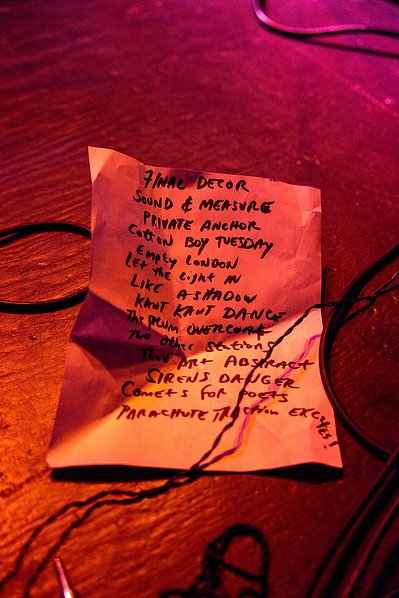 FINAL DECOR
SOUND & MEASURE
PRIVATE ANCHOR
COTTON BOY TUESDAY
EMPTY LONDON
LET the Light IN
LIKE A SHADOW
KANT KANT DANCE
The PLUM OVERCOAT
TWO OTHER STATIONS
ART ABSTRACT
SIRENS DANGER
COMETS FOR POETS
PARACHUTE